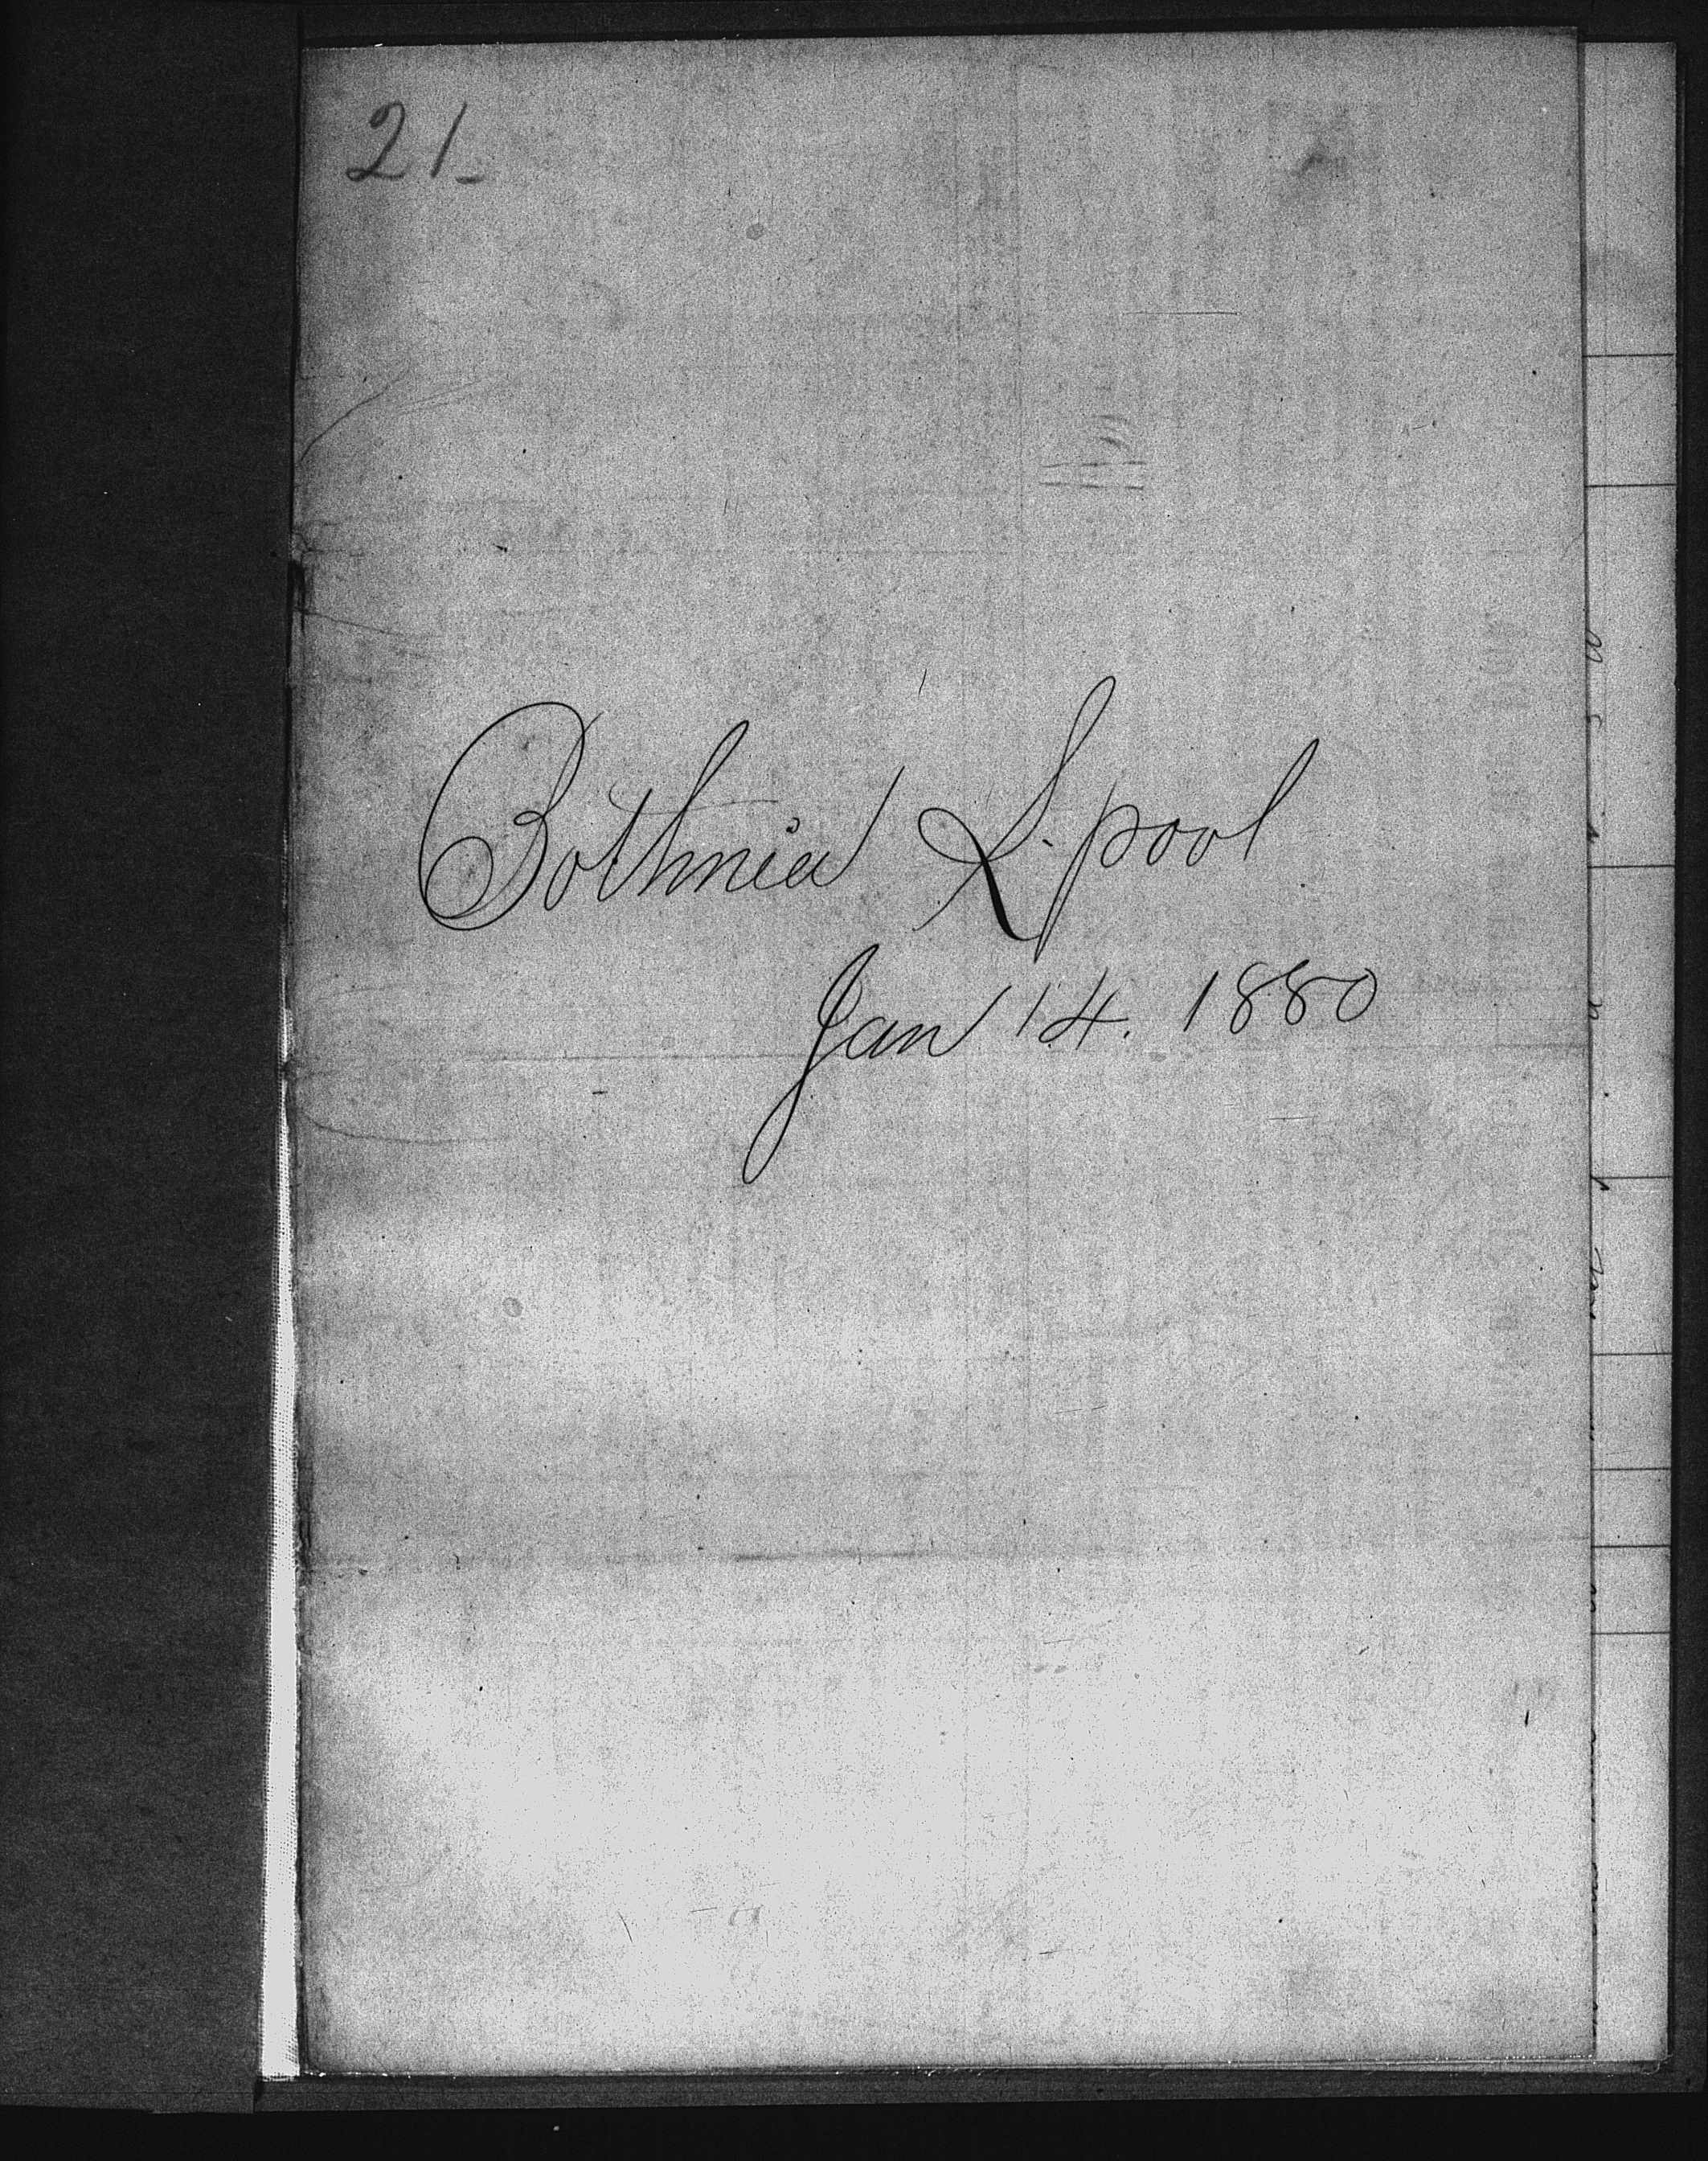 21-
Bothnia L-pool
Jan 14. 1880